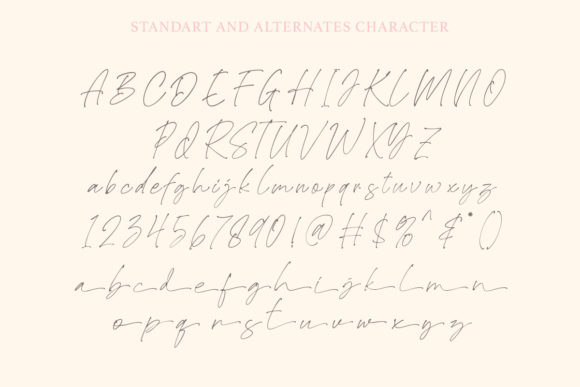 STANDART AND ALTERNATES CHARACTER
ABCDEFGHIJKLMNO
PQRSTUVWXYZ
abcdefghijklmnopqrstuvwxyz
1234567890!@#$%^&*()
abcdefghijklmn
opqrstuvwxyz